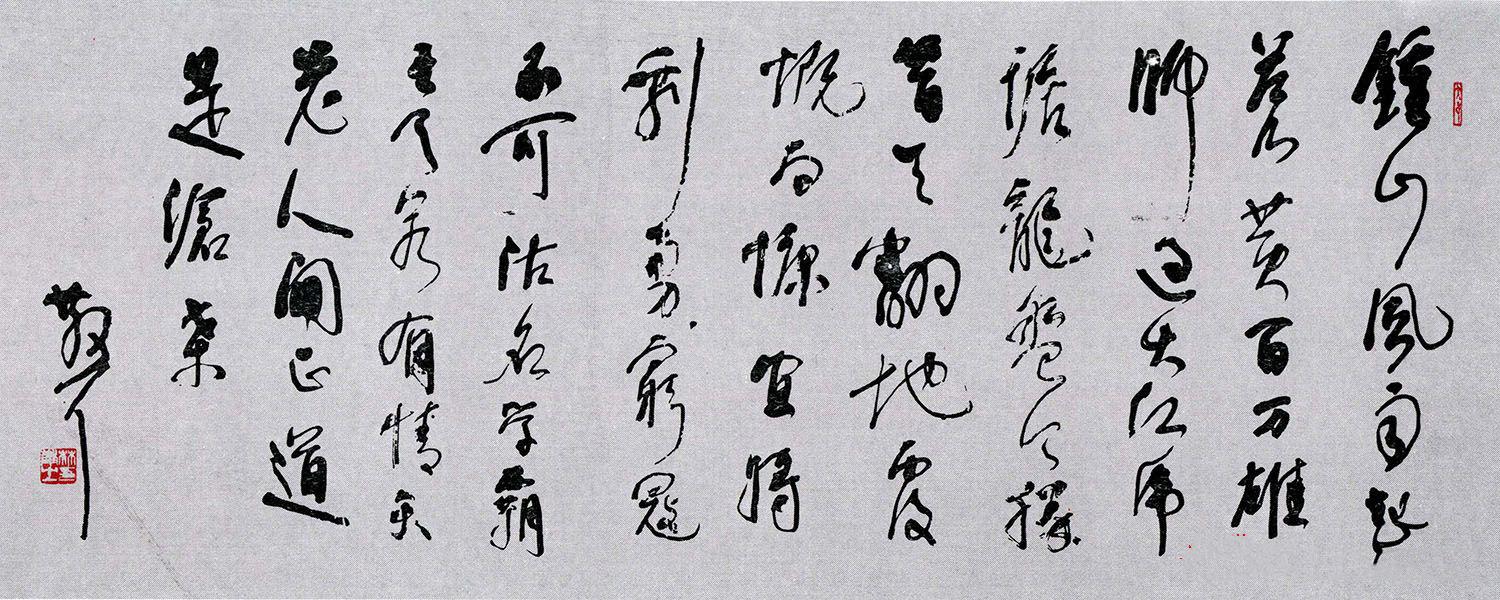 鍾山风雨起
蒼黄百万雄
師过大江虎
踞龍盤今勝
昔天翻地覆
慨而慷宜将
剩勇窮寇
不可沽名学霸
王天若有情天
老人間正道
是滄桑